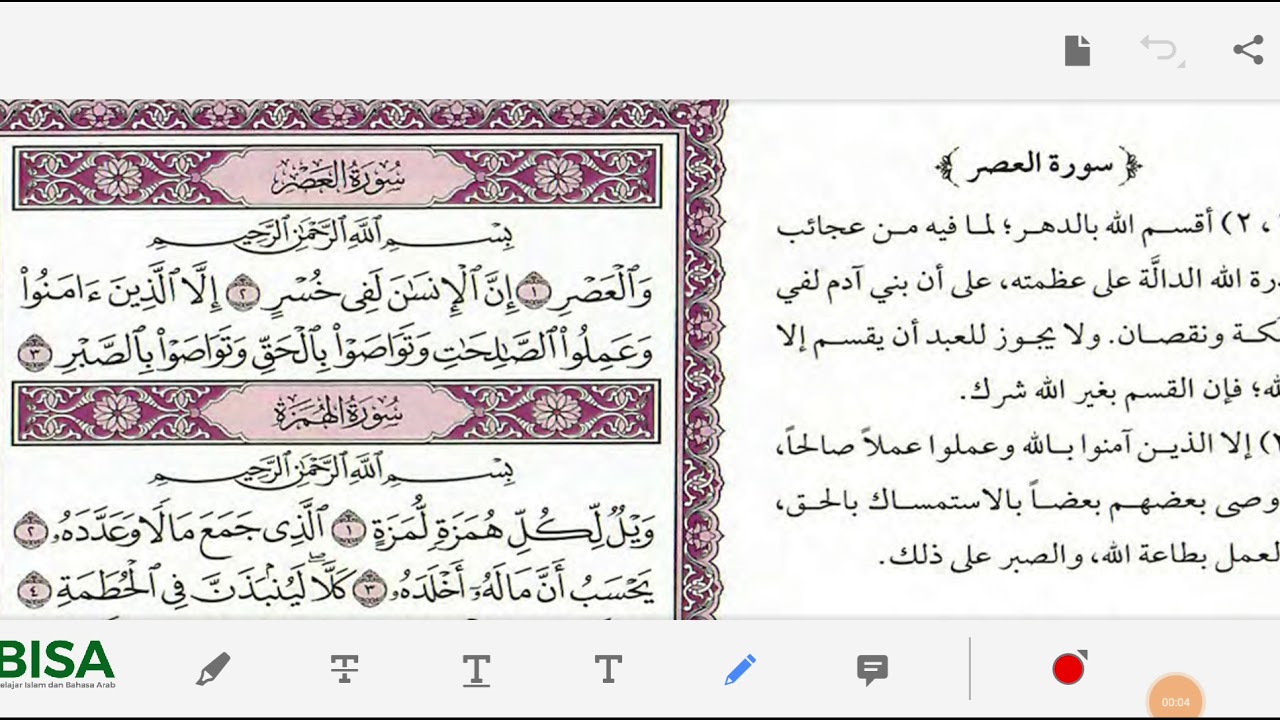 سُورَةُ العَصْرِ
بِسْمِ ٱللَّهِ ٱلرَّحْمَٰنِ ٱلرَّحِيمِ
وَٱلْعَصْرِ ١ إِنَّ ٱلْإِنسَٰنَ لَفِى خُسْرٍ ٢ إِلَّا ٱلَّذِينَ ءَامَنُوا۟
وَعَمِلُوا۟ ٱلصَّٰلِحَٰتِ وَتَوَاصَوْا۟ بِٱلْحَقِّ وَتَوَاصَوْا۟ بِٱلصَّبْرِ ٣
سُورَةُ الهُمَزَةِ
بِسْمِ ٱللَّهِ ٱلرَّحْمَٰنِ ٱلرَّحِيمِ
وَيْلٌ لِّكُلِّ هُمَزَةٍ لُّمَزَةٍ ١ ٱلَّذِى جَمَعَ مَالًا وَعَدَّدَهُۥ ٢
يَحْسَبُ أَنَّ مَالَهُۥٓ أَخْلَدَهُۥ ٣ كَلَّا ۖ لَيُنۢبَذَنَّ فِى ٱلْحُطَمَةِ ٤
﴿سورة العصر﴾
، ٢) أقسم الله بالدهر؛ لما فيه من عجائب
درة الله الدالَّة على عظمته، على أن بني آدم لفي
لكة ونقصان. ولا يجوز للعبد أن يقسم إلا
لله؛ فإن القسم بغير الله شرك.
) إلا الذين آمنوا بالله وعملوا عملاً صالحاً،
وصى بعضهم بعضاً بالاستمساك بالحق،
لعمل بطاعة الله، والصبر على ذلك.
BISA
elajar Islam dan Bahasa Arab
T
T
T
00:04